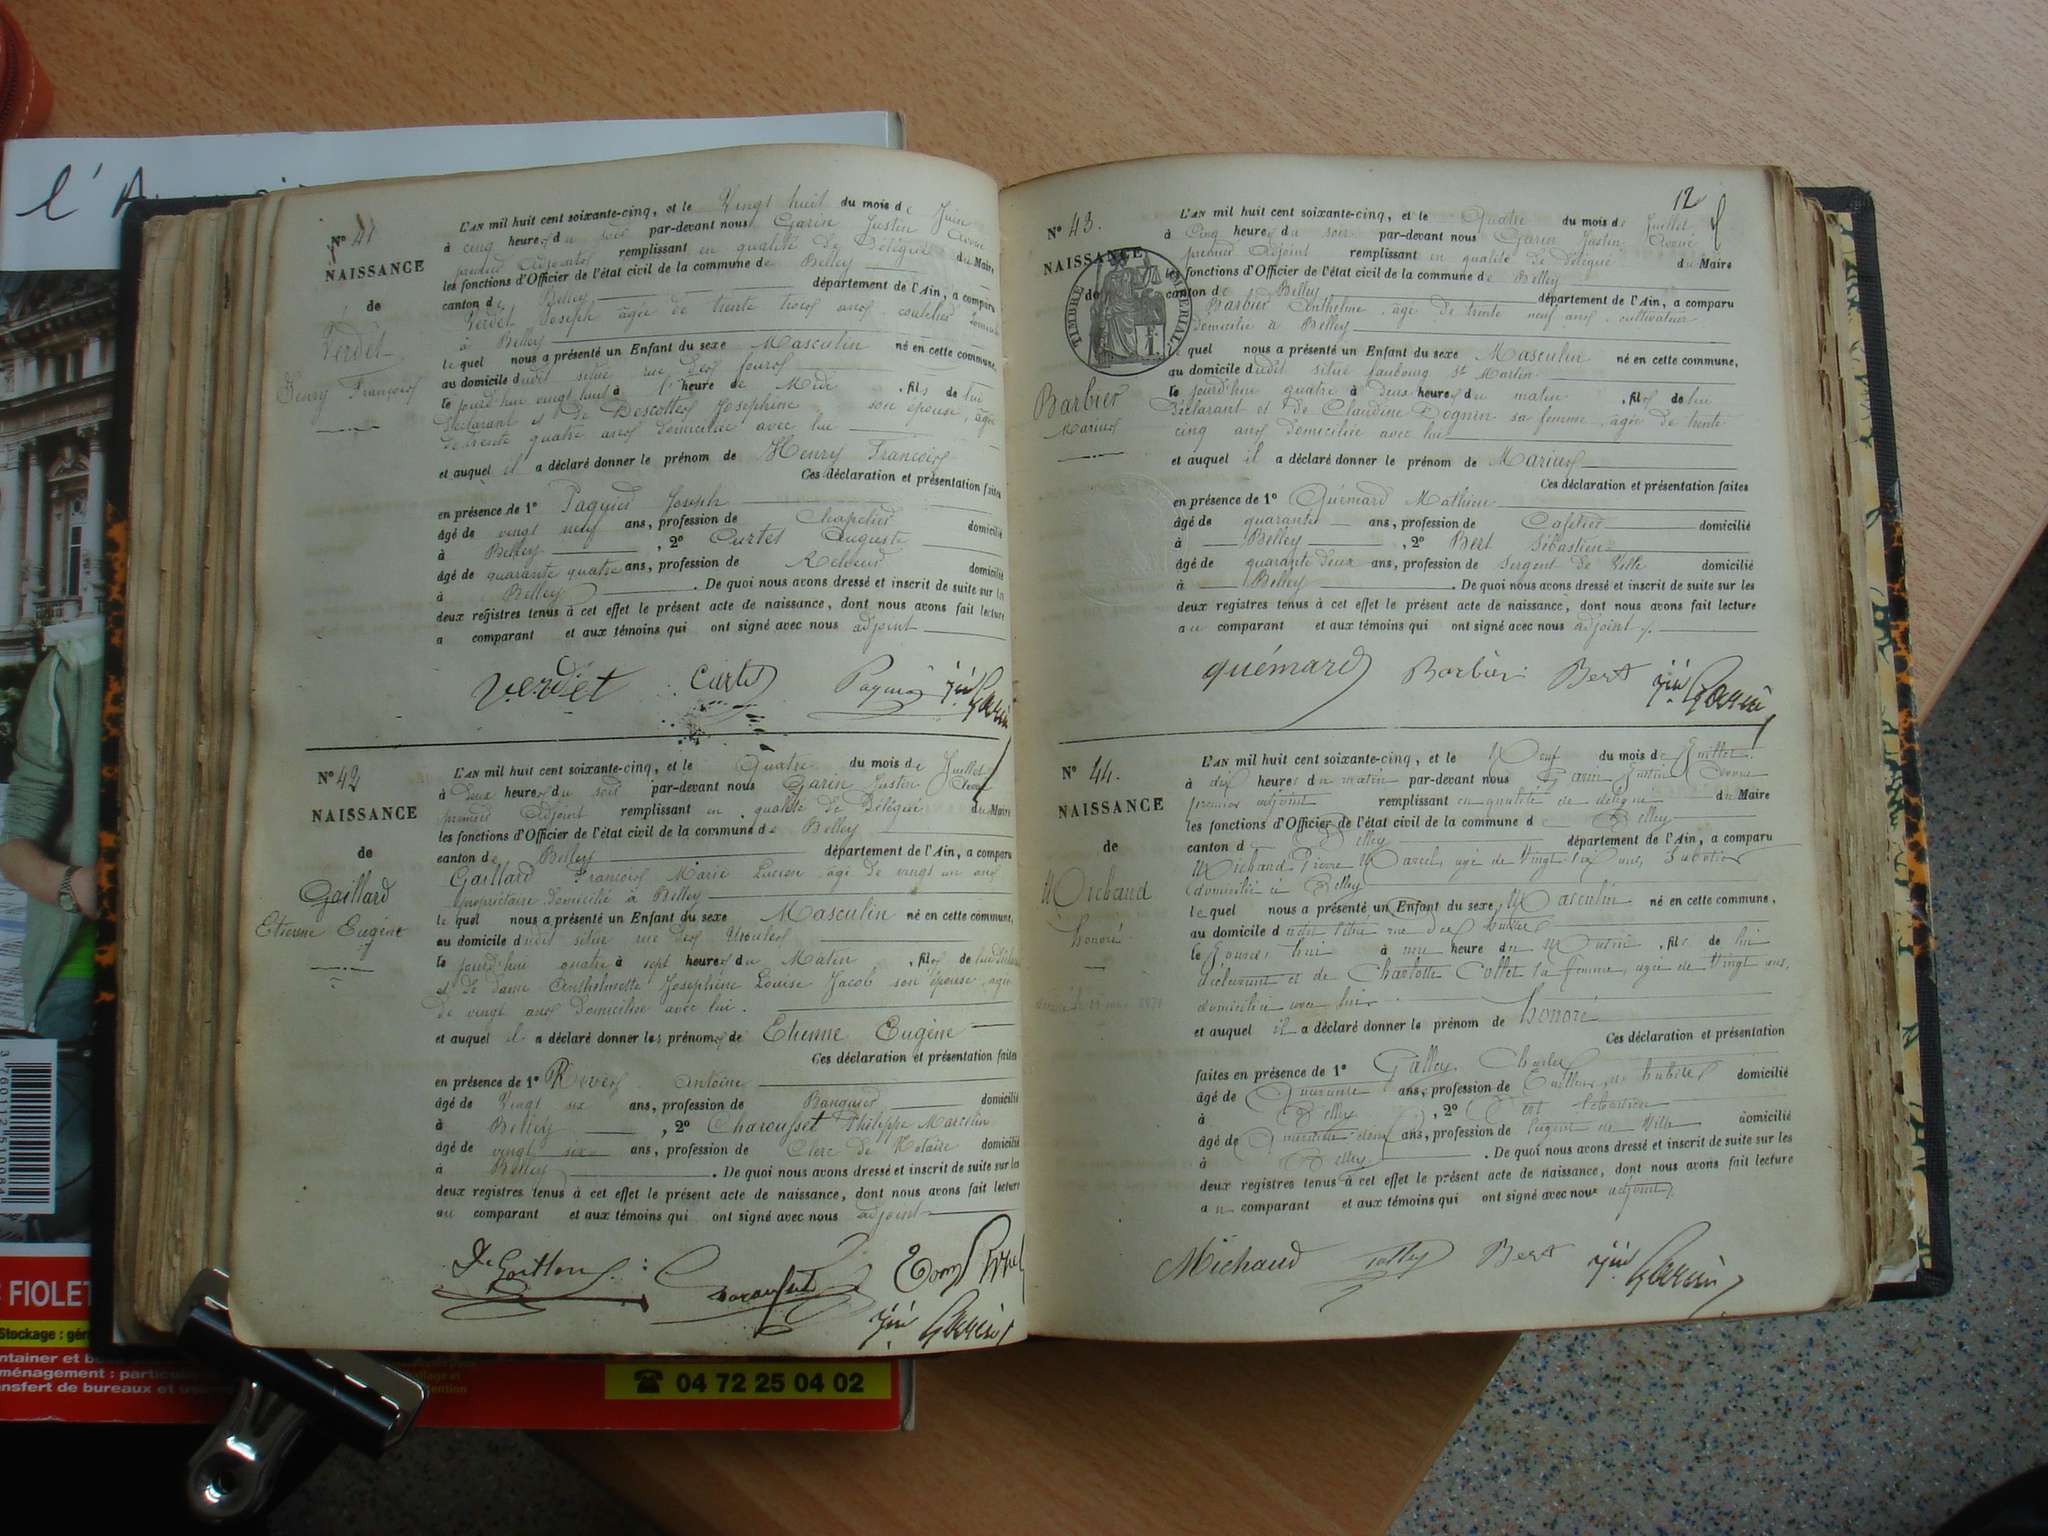 l'A
N° 41
NAISSANCE
de
Verdet
Henry François
L'AN mil huit cent soixante-cinq, et le Vingt huit du mois de Juin
à cinq heures du soir par-devant nous Garin Justin Avoué
premier Adjoint remplissant en qualité de Délégué du Maire
les fonctions d'Officier de l'état civil de la commune de Belley
canton de Belley département de l'Ain, a comparu
Verdet Joseph âgé de trente trois ans
à Belley
le quel nous a présenté un Enfant du sexe Masculin né en cette commune,
au domicile dudit situé rue des fours
le jourd'hui vingt huit à heure de Midi , fils de lui
déclarant et de Descottes Josephine son épouse, âgée
de trente quatre ans domiciliée avec lui
et auquel il a déclaré donner le prénom de Henry François
Ces déclaration et présentation faites
en présence de 1° Paquied Joseph
âgé de vingt neuf ans, profession de Chapelier domicilié
à Belley , 2° Curtet Auguste
âgé de quarante quatre ans, profession de Relieur domicilié
à Belley . De quoi nous avons dressé et inscrit de suite sur les
deux registres tenus à cet effet le présent acte de naissance, dont nous avons fait lecture
a comparant et aux témoins qui ont signé avec nous adjoint
Verdet Curtet Garin
N° 42
NAISSANCE
de
Gaillard
Etienne Eugène
L'AN mil huit cent soixante-cinq, et le Quatre du mois de Juillet
à deux heures du soir par-devant nous Garin Justin Avoué
premier Adjoint remplissant en qualité de Délégué du Maire
les fonctions d'Officier de l'état civil de la commune de Belley
canton de Belley département de l'Ain, a comparu
Gaillard François Marie Lucien âgé de vingt un ans
propriétaire domicilié à Belley
le quel nous a présenté un Enfant du sexe Masculin né en cette commune,
au domicile dudit situé rue des
le jourd'hui quatre à sept heures du Matin , fils de lui
et de dame Anthelmette Josephine Louise Jacob son épouse, âgée
de vingt ans domiciliée avec lui.
et auquel il a déclaré donner les prénoms de Etienne Eugène
Ces déclaration et présentation faites
en présence de 1° Antoine
âgé de Vingt six ans, profession de Banquier domicilié
à Belley , 2° Charousset Philippe Marcelin
âgé de vingt six ans, profession de Clerc de Notaire domicilié
à Belley . De quoi nous avons dressé et inscrit de suite sur les
deux registres tenus à cet effet le présent acte de naissance, dont nous avons fait lecture
au comparant et aux témoins qui ont signé avec nous adjoint
Garin
12
N° 43.
NAISSANCE
de
TIMBRE IMPERIAL
1 F.
Barbier
Marius
L'AN mil huit cent soixante-cinq, et le Quatre du mois de Juillet
à Cinq heures du soir par-devant nous Garin Justin Avoué
premier Adjoint remplissant en qualité de délégué du Maire
les fonctions d'Officier de l'état civil de la commune de Belley
canton de Belley département de l'Ain, a comparu
Barbier Anthelme âgé de trente neuf ans cultivateur
domicilié à Belley
le quel nous a présenté un Enfant du sexe Masculin né en cette commune,
au domicile dudit situé faubourg St Martin
le jourd'hui quatre à deux heures du matin , fils de lui
déclarant et de Claudine Dognin sa femme âgée de trente
cinq ans domiciliée avec lui
et auquel il a déclaré donner le prénom de Marius
Ces déclaration et présentation faites
en présence de 1° Quémard Mathieu
âgé de quarante ans, profession de Cafetier domicilié
à Belley , 2° Bert Sébastien
âgé de quarante deux ans, profession de Sergent de Ville domicilié
à Belley . De quoi nous avons dressé et inscrit de suite sur les
deux registres tenus à cet effet le présent acte de naissance, dont nous avons fait lecture
au comparant et aux témoins qui ont signé avec nous adjoint
quémard Barbier Bert Garin
N° 44.
NAISSANCE
de
Michaud
honoré
L'AN mil huit cent soixante-cinq, et le Neuf du mois de Juillet
à dix heures du matin par-devant nous Garin Justin Avoué
premier adjoint remplissant en qualité de délégué du Maire
les fonctions d'Officier de l'état civil de la commune de Belley
canton d Belley département de l'Ain, a comparu
Michaud Pierre Marcel, agé de Vingt six ans, Sabotier
domicilié à Belley
le quel nous a présenté un Enfant du sexe Masculin né en cette commune,
au domicile dudit situé rue des
le jourd'hui à une heure du Matin , fils de lui
déclarant et de Charlotte Collet sa femme, agée de Vingt ans,
domiciliée avec lui
et auquel il a déclaré donner le prénom de honoré
Ces déclaration et présentation
faites en présence de 1° Galley Charles
âgé de Quarante ans, profession de Tailleur d'habits domicilié
à Belley , 2° Bert Sébastien
âgé de Quarante deux ans, profession de Sergent de Ville domicilié
à Belley . De quoi nous avons dressé et inscrit de suite sur les
deux registres tenus à cet effet le présent acte de naissance, dont nous avons fait lecture
au comparant et aux témoins qui ont signé avec nous adjoint
Michaud Galley Bert Garin
FIOLET
Stockage :
ntainer et
ménagement :
nsfert de bureaux et
04 72 25 04 02